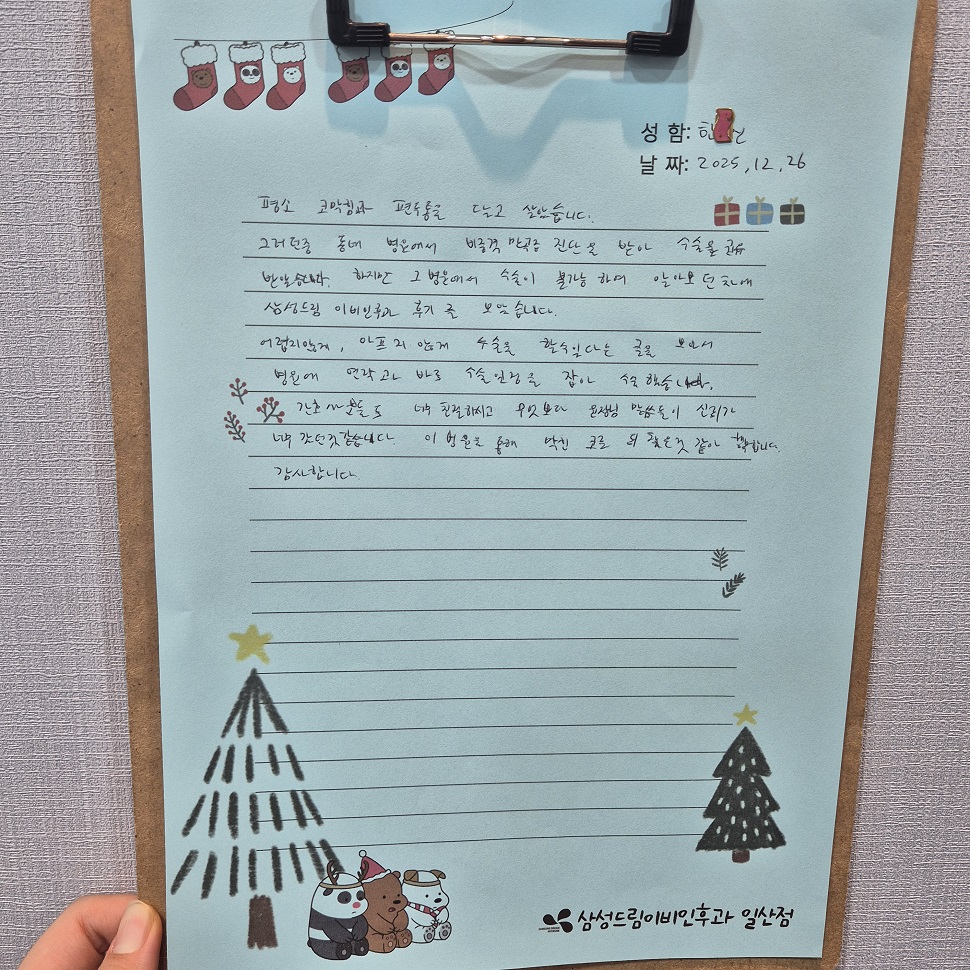 성 함: 한
날 짜: 2025, 12, 26
평소 코막힘과 편두통을 달고 살았습니다.
그러던중 동네 병원에서 비중격 만곡증 진단을 받아 수술을 권유
받았습니다. 하지만 그 병원에서 수술이 불가능 하여 알아보던 차에
삼성드림 이비인후과 후기 를 보았습니다.
어렵지않게, 아프지 않게 수술을 할수있다는 글을 보아서
병원에 연락 후 바로 수술일정을 잡아 수술 했습니다.
간호사분들도 너무 친절하시고 무엇보다 원장님 말씀들이 신뢰가
너무 갔던것같습니다. 이 병원을 통해 막힌 코를 뚫은것 같아 행복합니다.
감사합니다.
삼성드림이비인후과 일산점